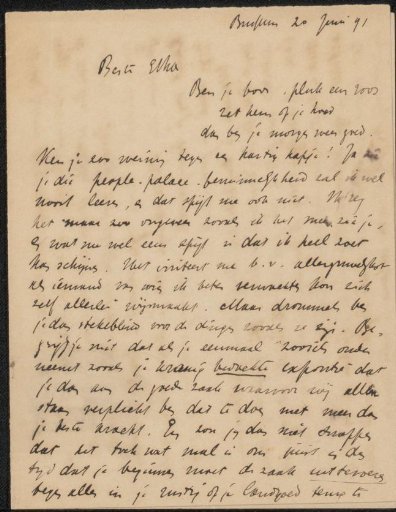 Brussum 20 Juni 91
Beste Etha
Ben je boos, pluk een roos
zet hem op je hoed
dan ben je morgen weer goed.
Kun je zoo weinig tegen een hartig hapje! Ja
je die people-palace-beminnelijkheid zal ik wel
nooit leeren, en dat spijt me ook niet.
het maar zoo ongeveer zooals ik het meen zei je,
en wat me wel eens spijt is dat ik heel zoet
kan schijnen. Het irriteert me b.v. allergruwelijkst
als iemand van wie ik beter verwachtte kan zich
zelf allerlei wijsmaakt. Maar drommels ben
je dan stekeblind voor de dingen zooals ze zijn. Be-
grijp je niet dat als je eenmaal zooiets onder
neemt zooals je kranig bedachte exportie dat
je dan aan de goede zaak waarvoor wij allen
staan verplicht ben dat te doen met meer dan
je beste kracht. En zou je dan niet snappen
dat het toch wat mal is om juist in den
tijd dat je beginnen moet de zaak uittevoeren
tegen alles in je rustig op je landgoed terug te